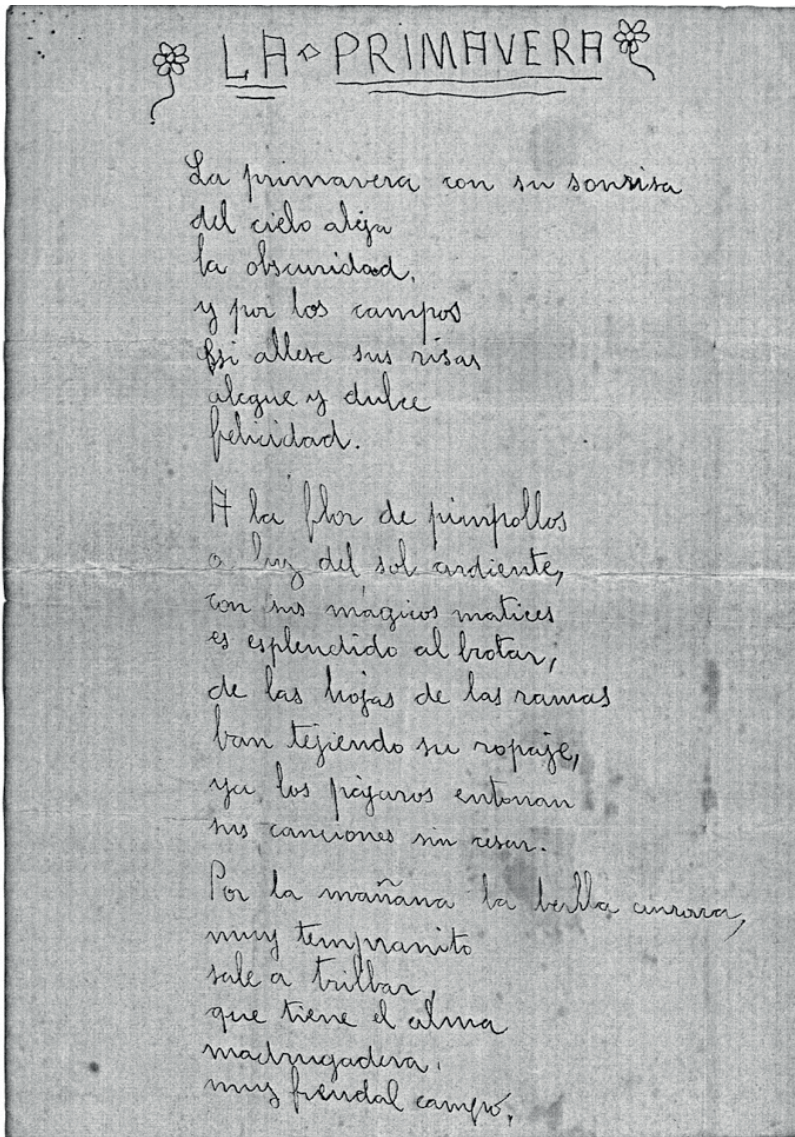 LA PRIMAVERA
La primavera con su sonrisa
del cielo aleja
la obscuridad,
y por los campos
sus risas
alegue y dulce
felicidad.
A la flor de pimpollos
a luz del sol ardiente,
con sus mágicos matices
es esplendido al brotar,
de las hojas de las ramas
ban tejiendo su ropaje,
ya los pájaros entonan
sus canciones sin cesar.
Por la mañana la bella aurora,
muy tempranito
sale a trillar,
que tiene el alma
madrugadera,
muy campo,